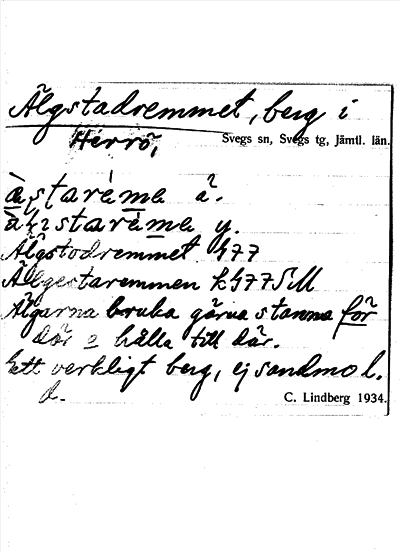 Älgstadremmet, berg i
Herrö,
Svegs sn, Svegs tg, Jämtl. län.
staréme ä.
staréme y.
Älgstodremmet G77
Älgestaremmen k G77 SM
Älgarna bruka gärna stanna för
där o hålla till där.
Ett verkligt berg, ej sandmo l.
d.
C. Lindberg 1934.